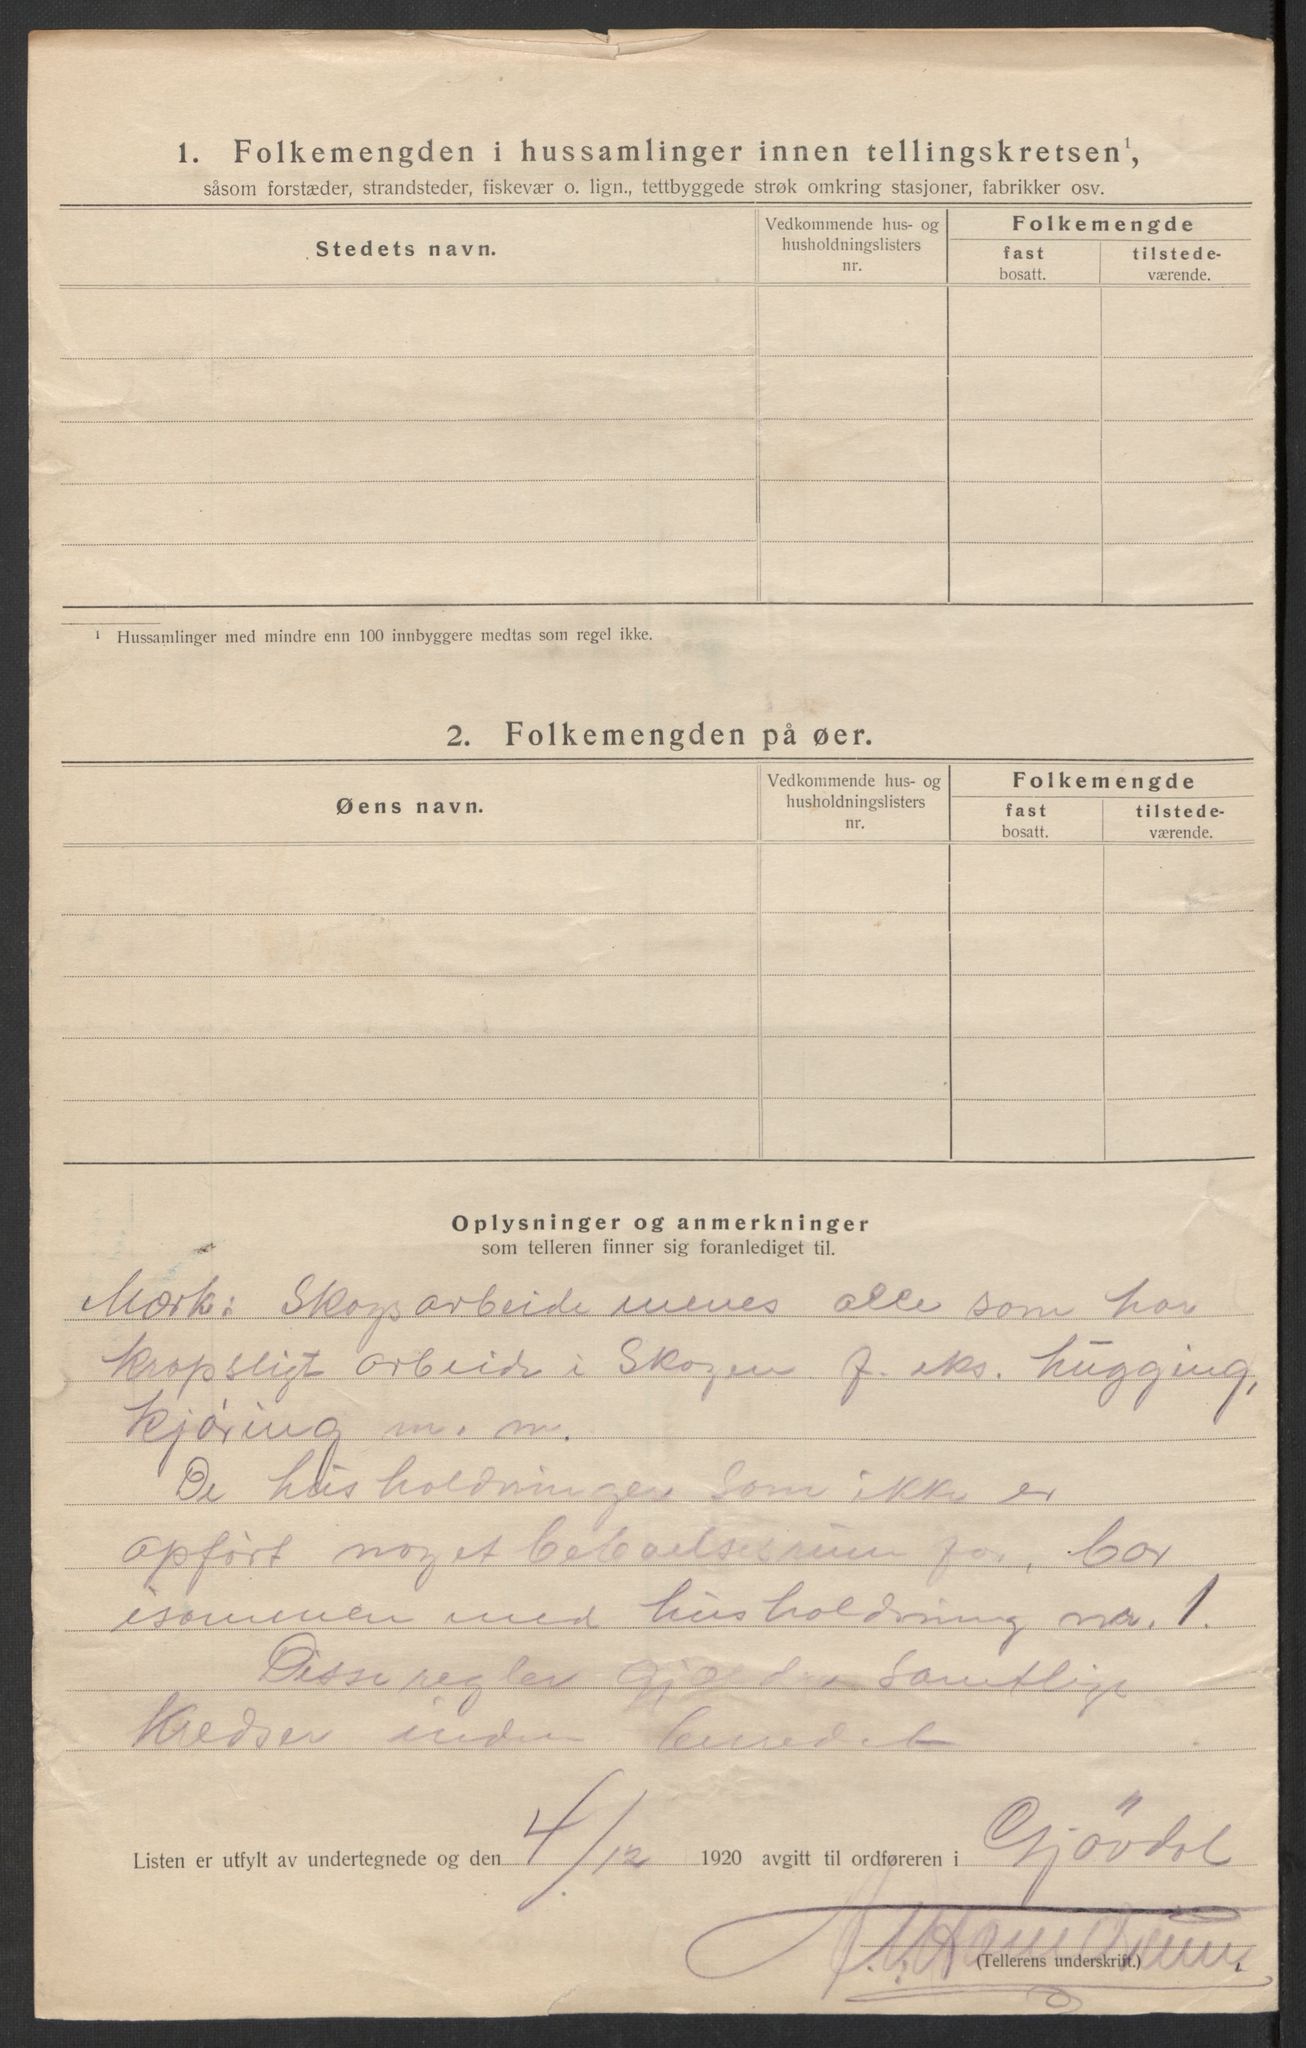 1. Folkemengden i hussamlinger innen tellingskretsen¹,
såsom forstæder, strandsteder, fiskevær o. lign., tettbyggede strøk omkring stasjoner, fabrikker osv.
Stedets navn.
Vedkommende hus- og
husholdningslisters
nr.
Folkemengde
fast
bosatt.
tilstede-
værende.
¹ Hussamlinger med mindre enn 100 innbyggere medtas som regel ikke.
2. Folkemengden på øer.
Øens navn.
Vedkommende hus- og
husholdningslisters
nr.
Folkemengde
fast
bosatt.
tilstede-
værende.
Oplysninger og anmerkninger
som telleren finner sig foranlediget til.
Mærk: Skogsarbeide menes alle som har
kropsligt arbeide i Skogen f. eks. hugging,
kjøring m. m.
De husholdninger som ikke er
opført noget beboelsesrum for, bor
isammen med husholdning nr. 1.
Disse regler gjælder samtlige
Kredser inden herredet
Listen er utfylt av undertegnede og den 4/12 1920 avgitt til ordføreren i Gjövdal
(Tellerens underskrift.)